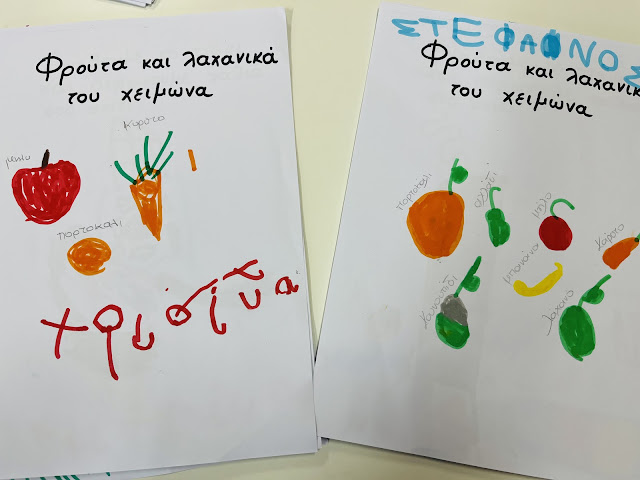 Φρούτα και λαχανικά
του χειμώνα
μηλο
Καρότο
πορτοκαλι
χριστίνα
ΣΤΕΦΑΝΟΣ
Φρούτα και λαχανικ
του χειμώνα
πορτοκαλι
αχλάδι
μηλο
μπανάνα
καρότο
κουνουπίδι
λαχανο